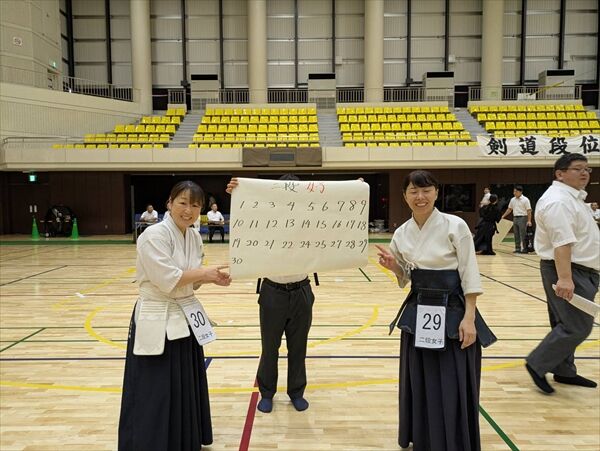 剣道段位
二段 女子
1 2 3 4 5 6 7 8 9
10 11 12 13 14 15 16 17 18
19 20 21 22 24 25 27 28 29
30
30
二段女子
29
二段女子